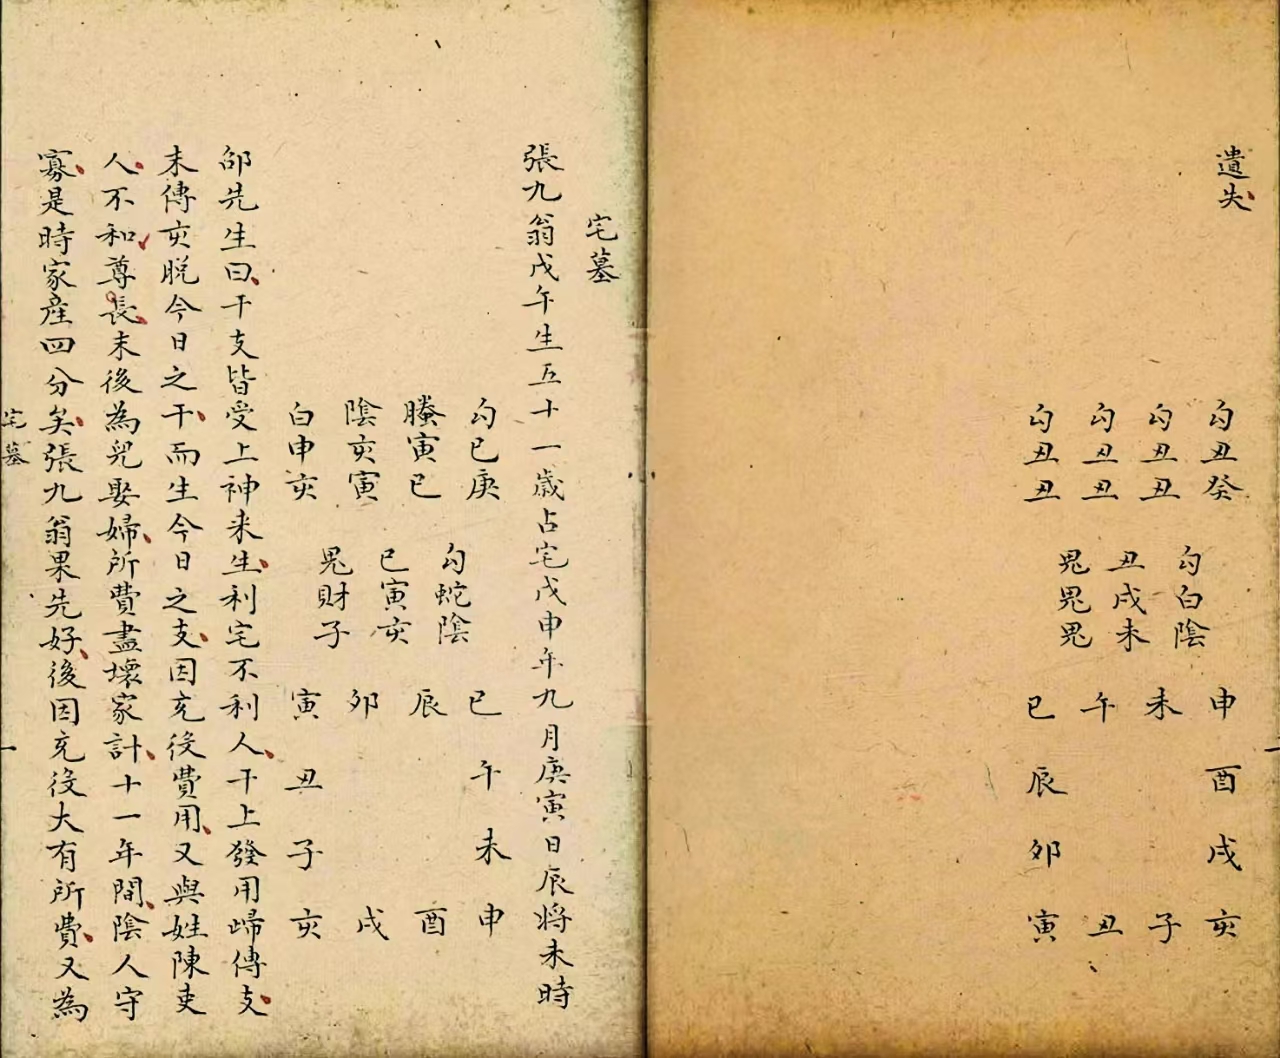 遺失
勾丑癸
勾丑丑
勾丑丑
勾丑丑
勾白陰
丑戌未
鬼鬼鬼
申酉戌亥
未子
午丑
巳辰卯寅
宅墓
張九翁戊午生五十一歳占宅戊申年九月庚寅日辰將未時
勾巳庚
螣寅巳
陰亥寅
白申亥
勾蛇陰
巳寅亥
鬼財子
巳午未申
辰酉
卯戌
寅丑子亥
邵先生曰干支皆受上神来生利宅不利人干上發用歸傳支
末傳亥脱今日之干而生今日之支因充役費用又與姓陳吏
人不和尊長末後為兒娶婦所費盡壞家計十一年間陰人守
寡是時家産四分矣張九翁果先好後因充役大有所費又為
宅墓
一